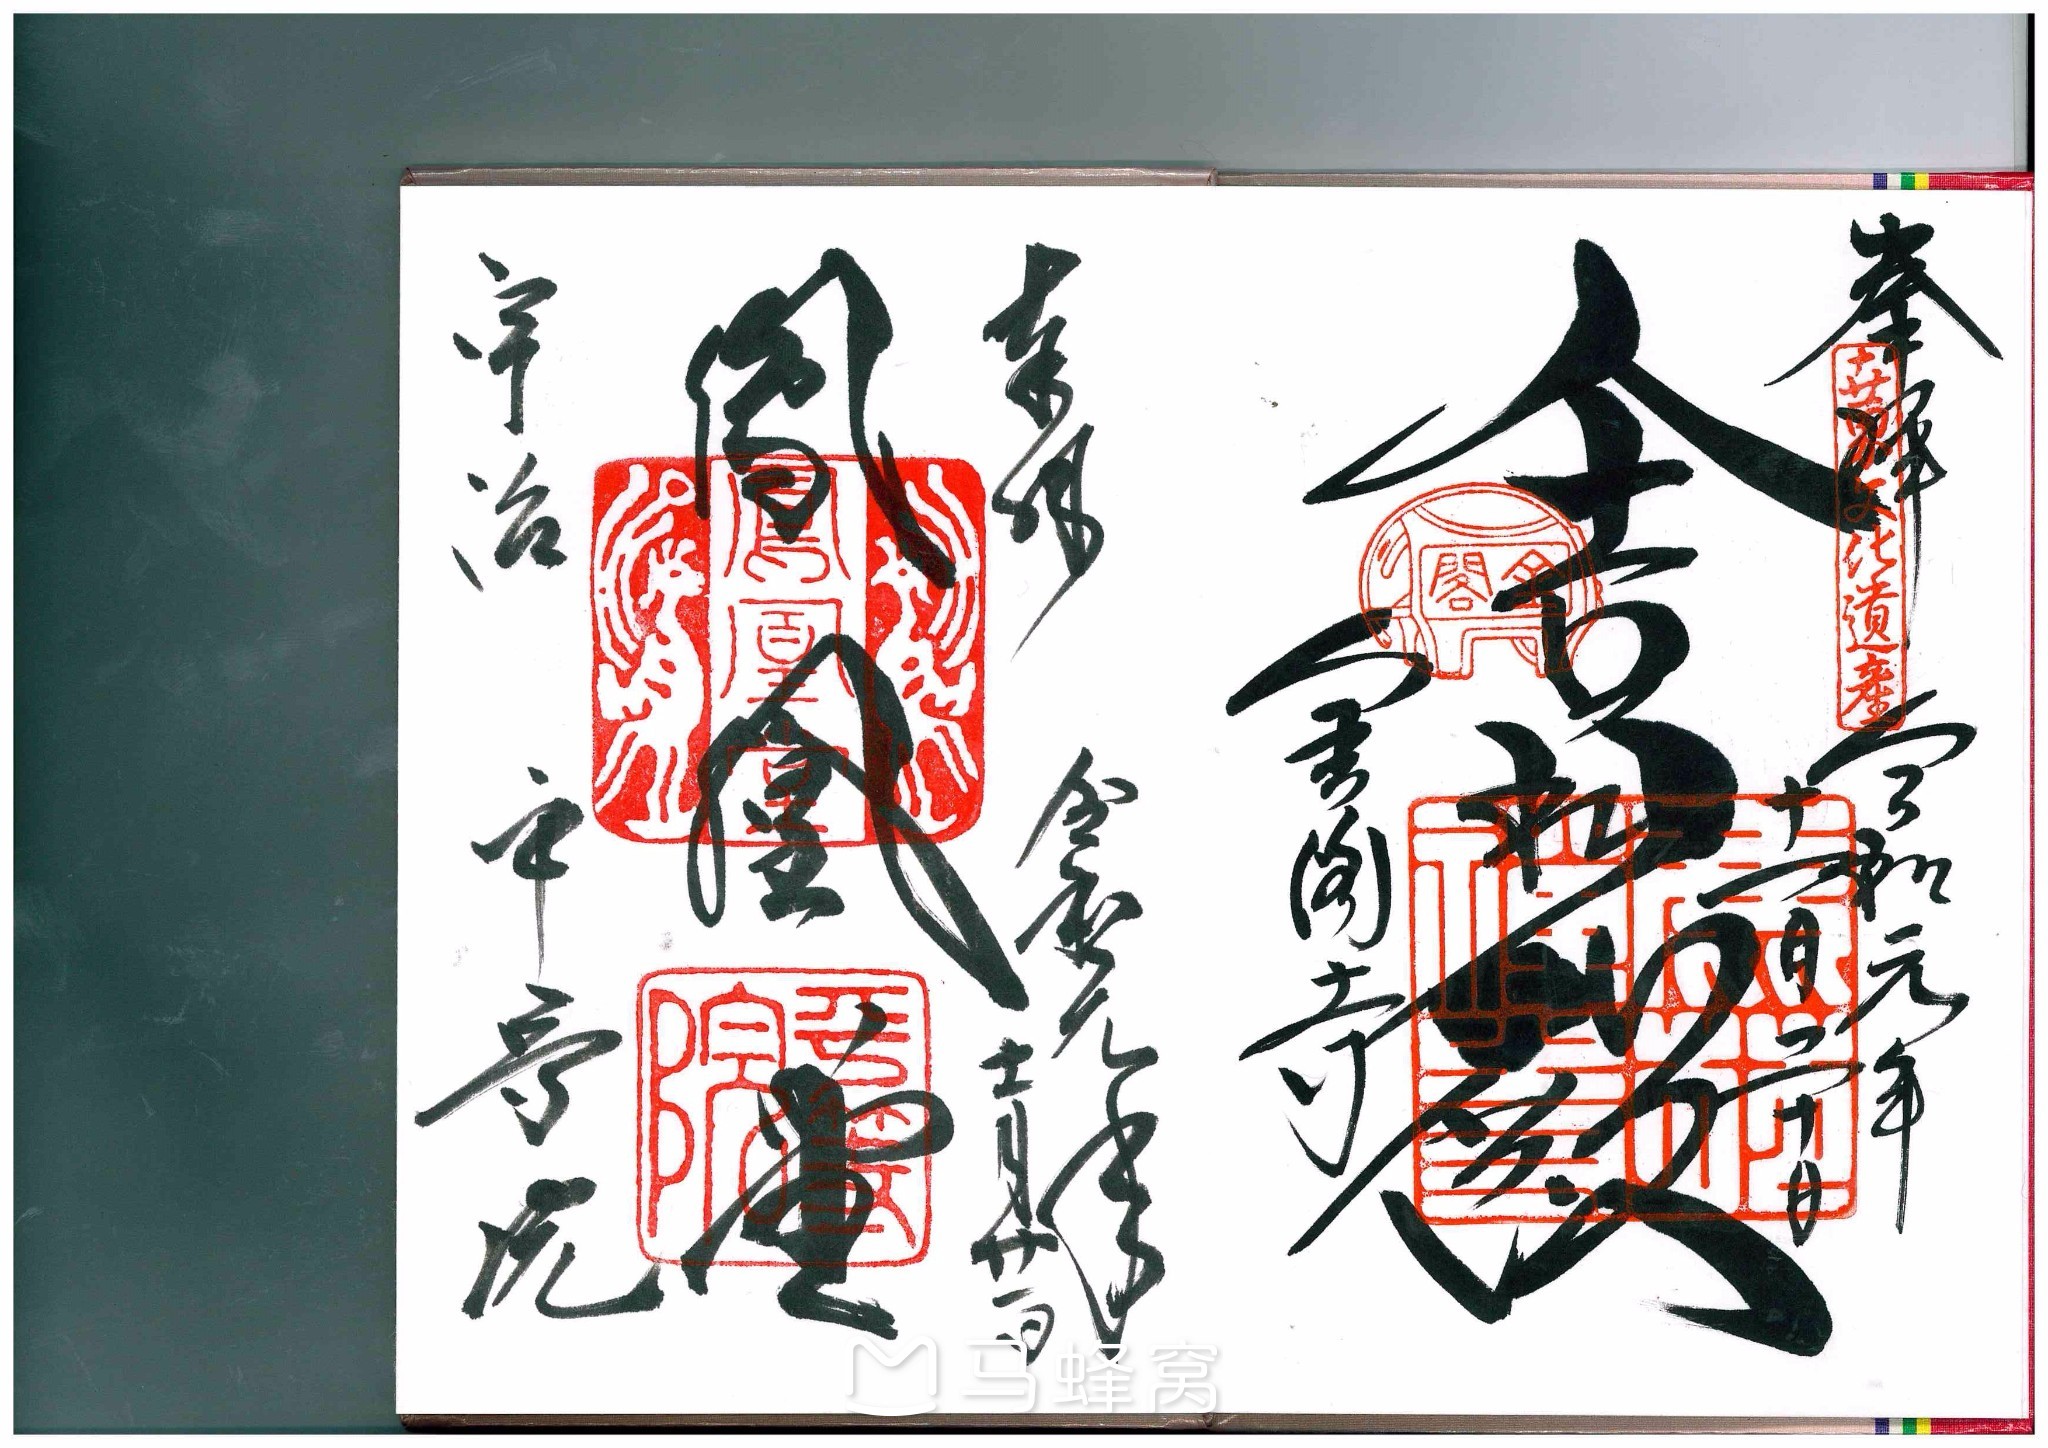 奉拝
世界文化遺産
令和元年
十一月二十日
舎利殿
金閣
金閣寺
奉拝
令和元年
十一月廿一日
鳳凰堂
鳳凰堂
平等院
宇治
平等院
马蜂窝